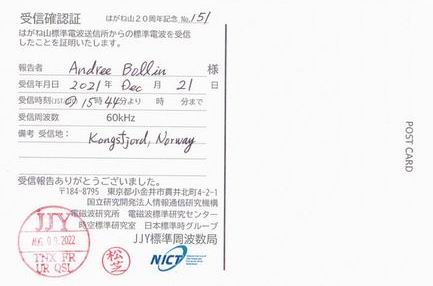 受信確認証 はがね山20周年記念 No.151
はがね山標準電波送信所からの標準電波を受信
したことを証明いたします。
報告者 Andree Bollin 様
受信年月日 2021年 Dec 月 21日
受信時刻(JST) 15時44分より 時 分まで
受信周波数 60kHz
備考 受信地: Kongsfjord, Norway
受信報告ありがとうございました。
〒184-8795 東京都小金井市貫井北町4-2-1
国立研究開発法人情報通信研究機構
電磁波研究所 電磁波標準研究センター
時空標準研究室 日本標準時グループ
JJY標準周波数局
JJY
AUG 09. 2022
TNX FR
UR QSL
松芝
NICT
POST CARD